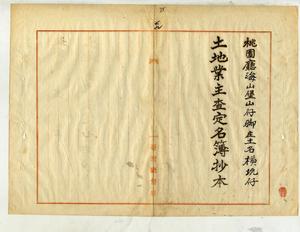 桃園廳海山堡山仔脚庄土名橫坑仔
土地業主查定名簿抄本